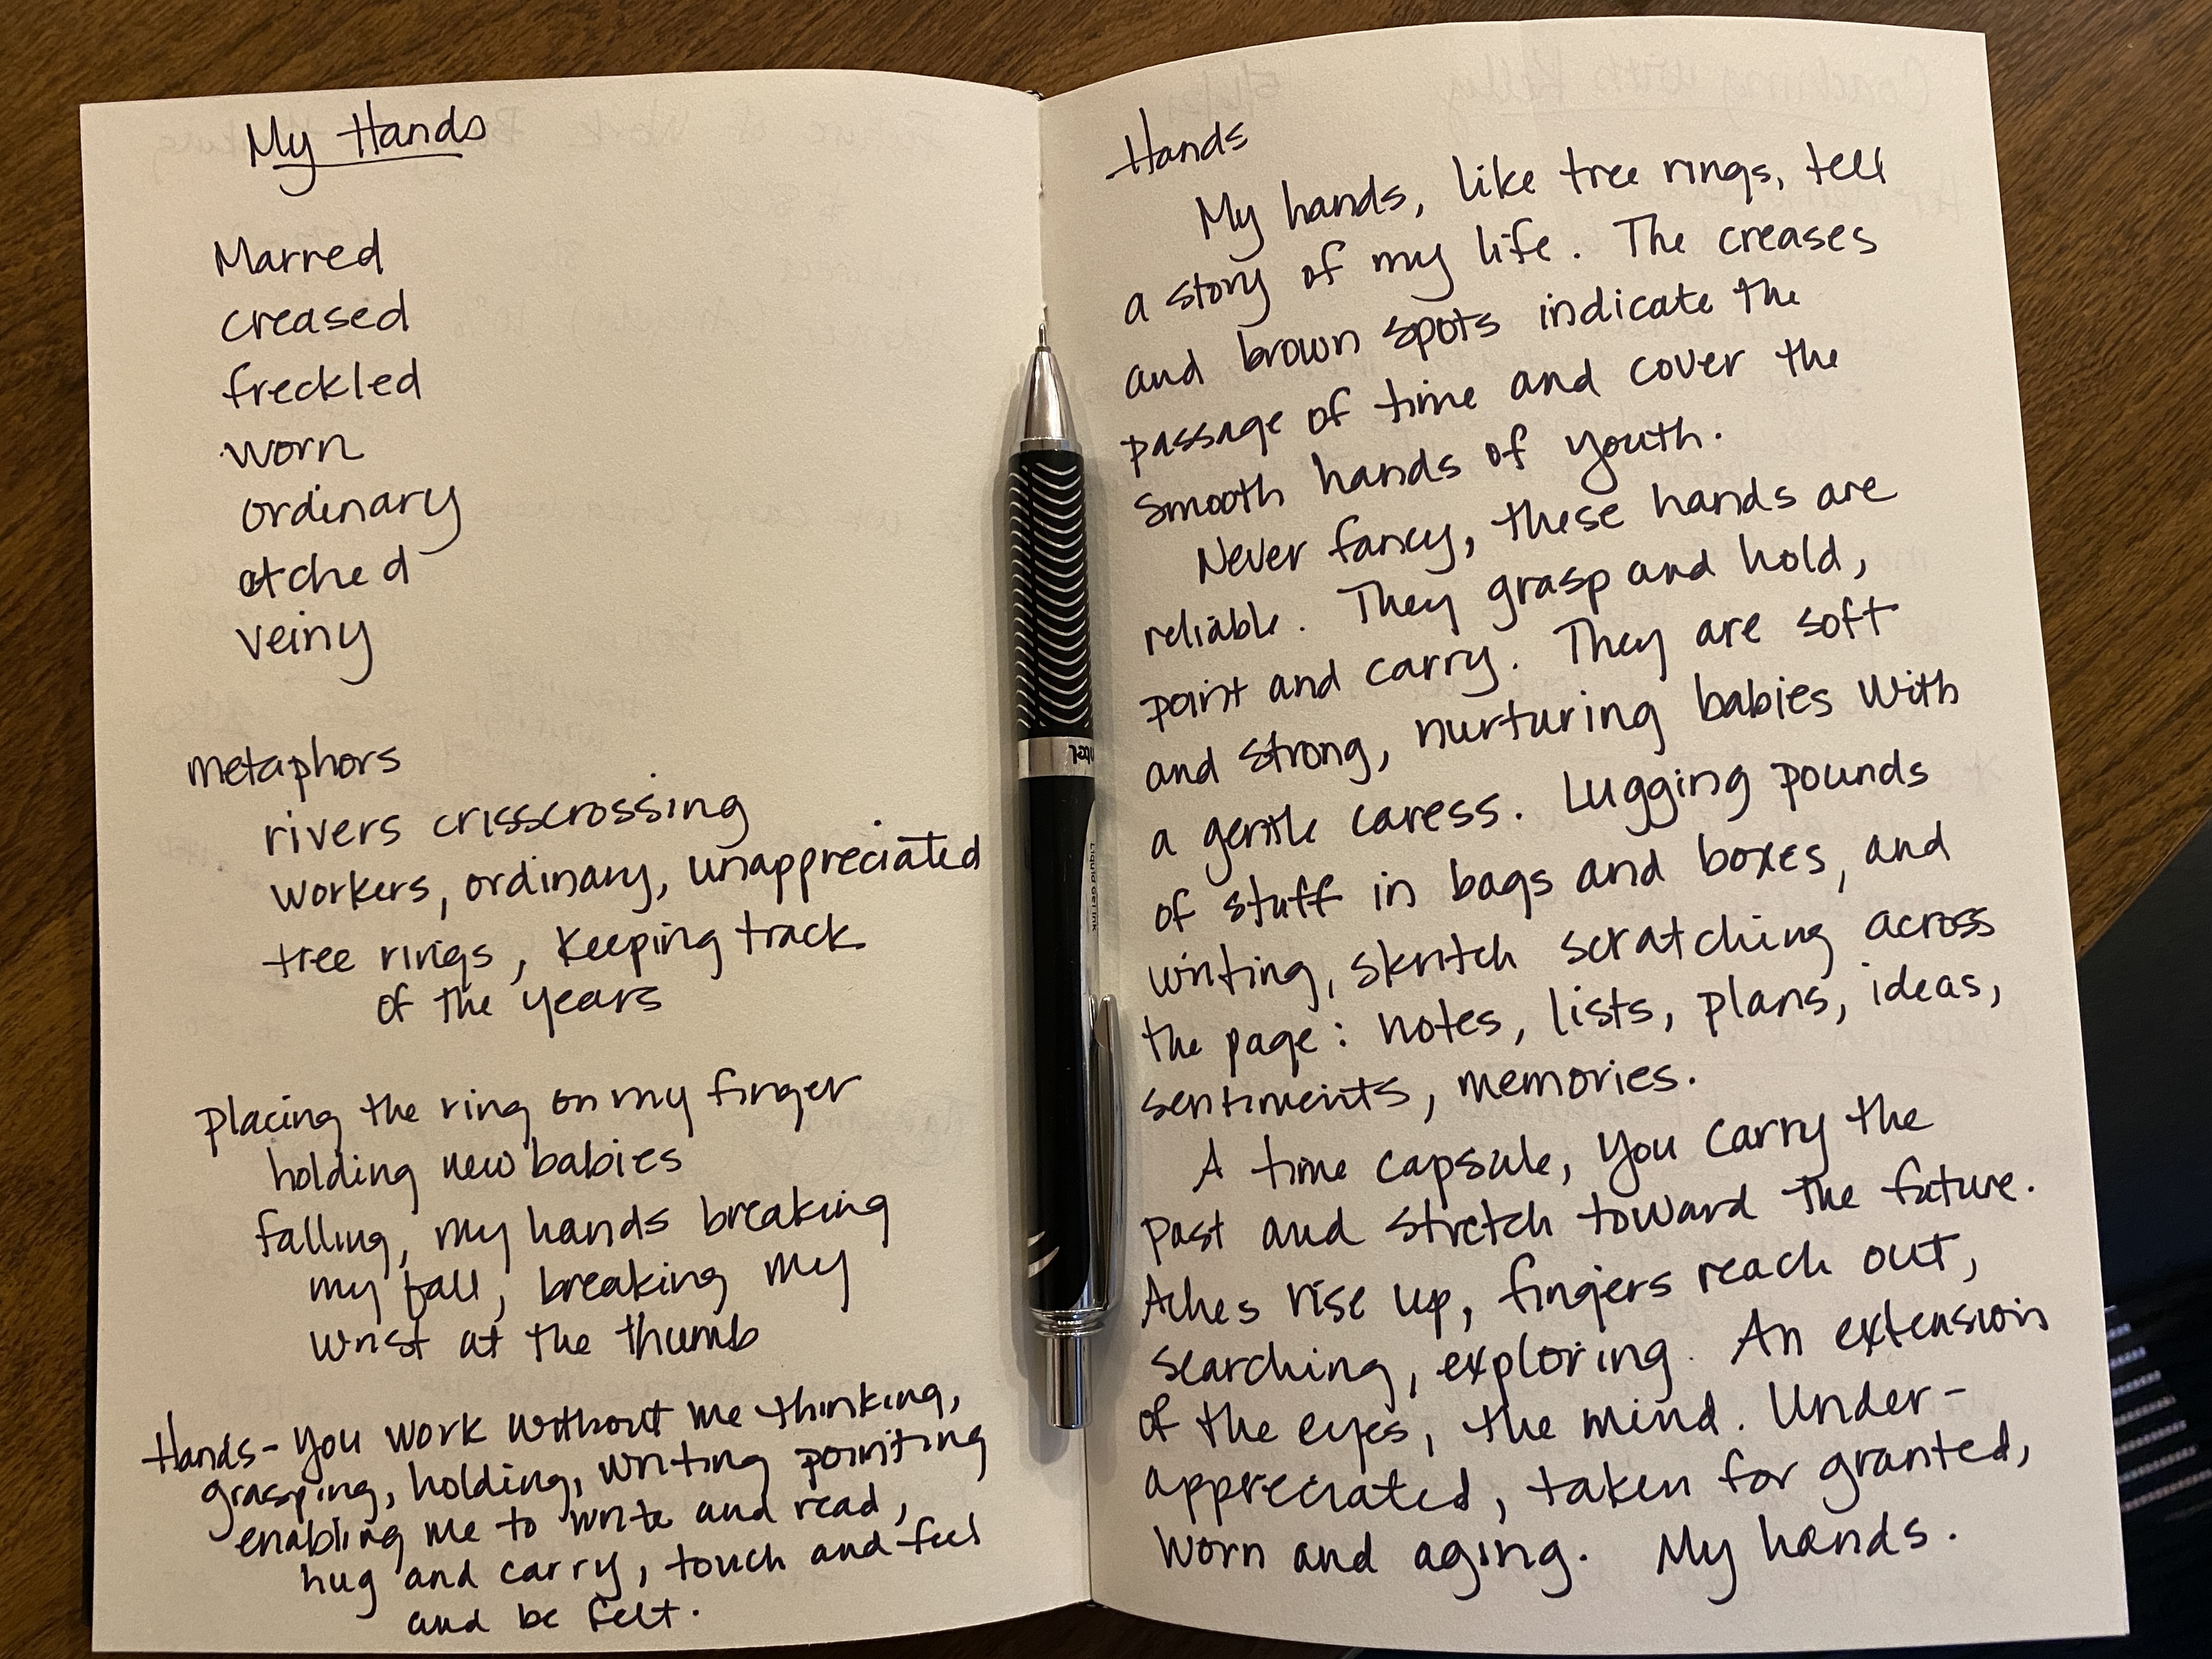 My Hands
Marred
creased
freckled
worn
ordinary
etched
veiny
metaphors
rivers crisscrossing
workers, ordinary, unappreciated
tree rings, keeping track
of the years
placing the ring on my finger
holding new babies
falling, my hands breaking
my fall, breaking my
wrist at the thumb
Hands - you work without me thinking,
grasping, holding, writing pointing
enabling me to write and read,
hug and carry, touch and feel
and be felt.
Liquid Gel Ink
Hands
My hands, like tree rings, tell
a story of my life. The creases
and brown spots indicate the
passage of time and cover the
smooth hands of youth.
Never fancy, these hands are
reliable. They grasp and hold,
point and carry. They are soft
and strong, nurturing babies with
a gentle caress. Lugging pounds
of stuff in bags and boxes, and
writing, skritch scratching across
the page: notes, lists, plans, ideas,
sentiments, memories.
A time capsule, you carry the
past and stretch toward the future.
Aches rise up, fingers reach out,
searching, exploring. An extension
of the eyes, the mind. Under-
appreciated, taken for granted,
worn and aging. My hands.